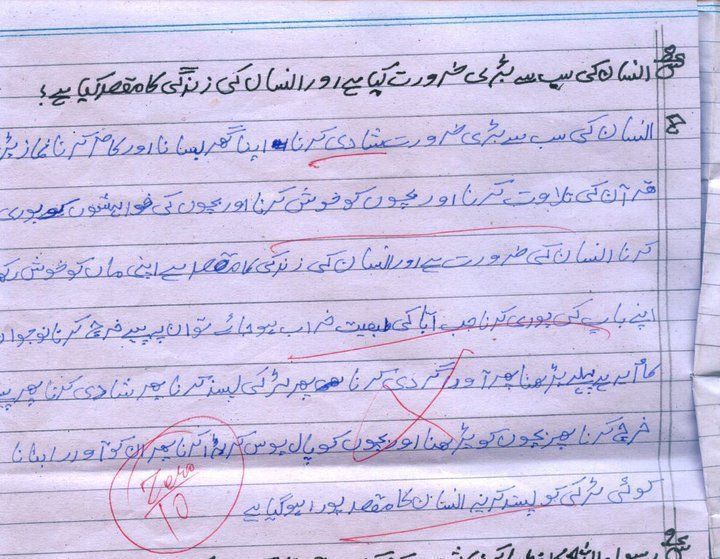 س انسان کی سب سے بڑی ضرورت کیا ہے اور انسان کی زندگی کا مقصد کیا ہے؟
ج انسان کی سب سے بڑی ضرورت شادی کرنا اپنا گھر بسانا اور کام کرنا نماز پڑ
قرآن کی تلاوت کرنا اور بچوں کو خوش کرنا اور بچوں کی خواہشوں کو پوری
کرنا انسان کی ضرورت ہے اور انسان کی زندگی کا مقصد ہے اپنی ماں کو خوش رکھ
اپنے باپ کی پوری کرنا جب آپا کی طبعیت خراب ہو جائے تو ان پر پیسے خرچ کرنا نوجوان
کا پہلے پڑھنا پھر آوارگردی کرنا پھر لڑکی پسند کرنا پھر شادی کرنا پھر پیسے
خرچ کرنا پھر بچوں کو پڑھنا اور بچوں کو پال پوس کر بڑا کرنا پھر ان کو آوارا بنانا
کوئی لڑکی کو پسند کرنے انسان کا مقصد پورا ہو گیا ہے
Zero
10